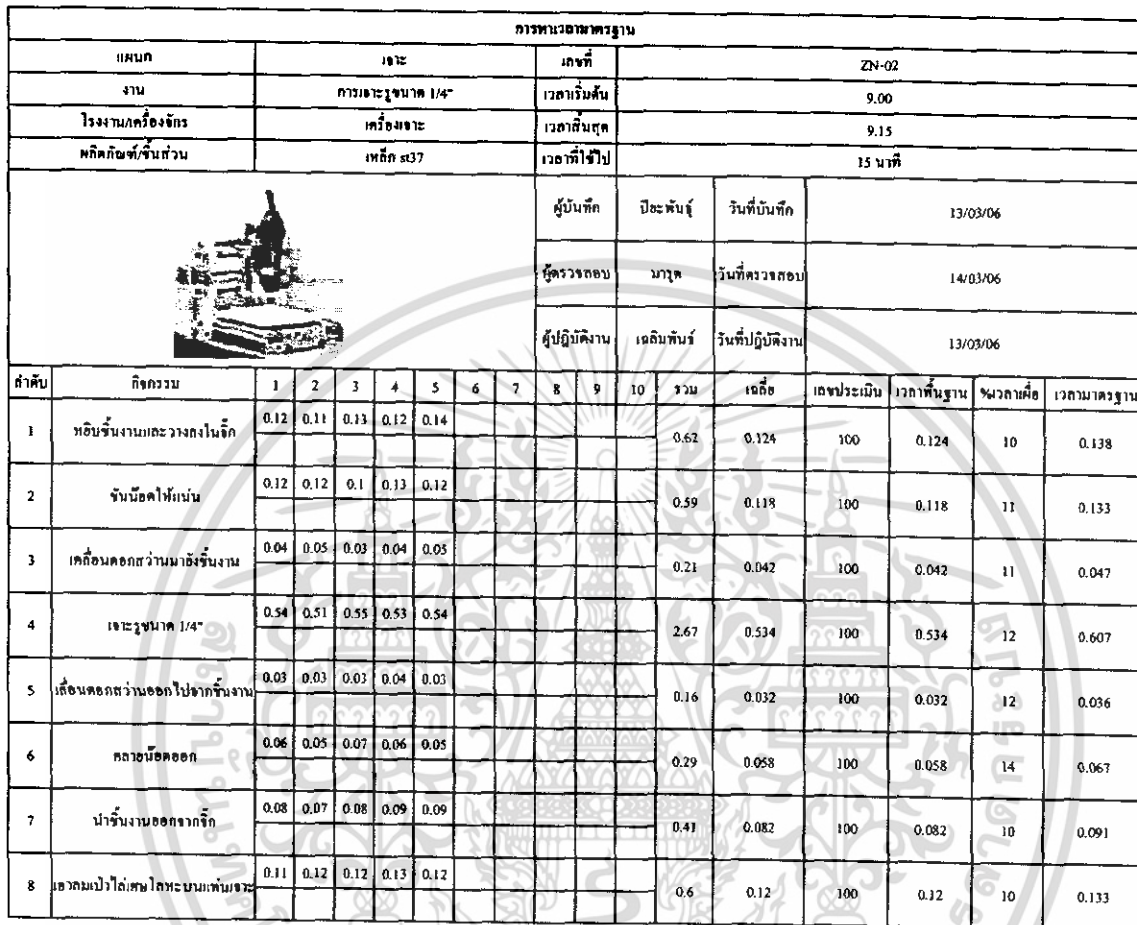 การหาเวลามาตรฐาน
แผนก เจาะ เลขที่ ZN-02
งาน การเจาะรูขนาด 1/4" เวลาเริ่มต้น 9.00
โรงงาน/เครื่องจักร เครื่องเจาะ เวลาสิ้นสุด 9.15
ผลิตภัณฑ์/ชิ้นส่วน เหล็ก st37 เวลาที่ใช้ไป 15 นาที
ผู้บันทึก ปิยะพันธุ์ วันที่บันทึก 13/03/06
ผู้ตรวจสอบ มารุต วันที่ตรวจสอบ 14/03/06
ผู้ปฏิบัติงาน เฉลิมพันธ์ วันที่ปฏิบัติงาน 13/03/06
ลำดับ กิจกรรม 1 2 3 4 5 6 7 8 9 10 รวม เฉลี่ย เลขประเมิน เวลาพื้นฐาน %เวลาเผื่อ เวลามาตรฐาน
1 หยิบชิ้นงานและวางลงในจิ๊ก 0.12 0.11 0.13 0.12 0.14 0.62 0.124 100 0.124 10 0.138
2 ขันน๊อตให้แน่น 0.12 0.12 0.1 0.13 0.12 0.59 0.118 100 0.118 11 0.133
3 เคลื่อนดอกสว่านมายังชิ้นงาน 0.04 0.05 0.03 0.04 0.05 0.21 0.042 100 0.042 11 0.047
4 เจาะรูขนาด 1/4" 0.54 0.51 0.55 0.53 0.54 2.67 0.534 100 0.534 12 0.607
5 เลื่อนดอกสว่านออกไปจากชิ้นงาน 0.03 0.03 0.03 0.04 0.03 0.16 0.032 100 0.032 12 0.036
6 คลายน๊อตออก 0.06 0.05 0.07 0.06 0.05 0.29 0.058 100 0.058 14 0.067
7 นำชิ้นงานออกจากจิ๊ก 0.08 0.07 0.08 0.09 0.09 0.41 0.082 100 0.082 10 0.091
8 เอาลมเป่าไล่เศษโลหะบนแท่นเจาะ 0.11 0.12 0.12 0.13 0.12 0.6 0.12 100 0.12 10 0.133